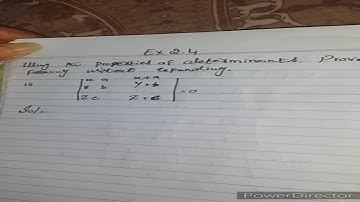 Ex 2.4
Using the properties of determinants Prove
following without expanding.
x a x+a
y b y+b =0
z c z+c
Soln
PowerDirector